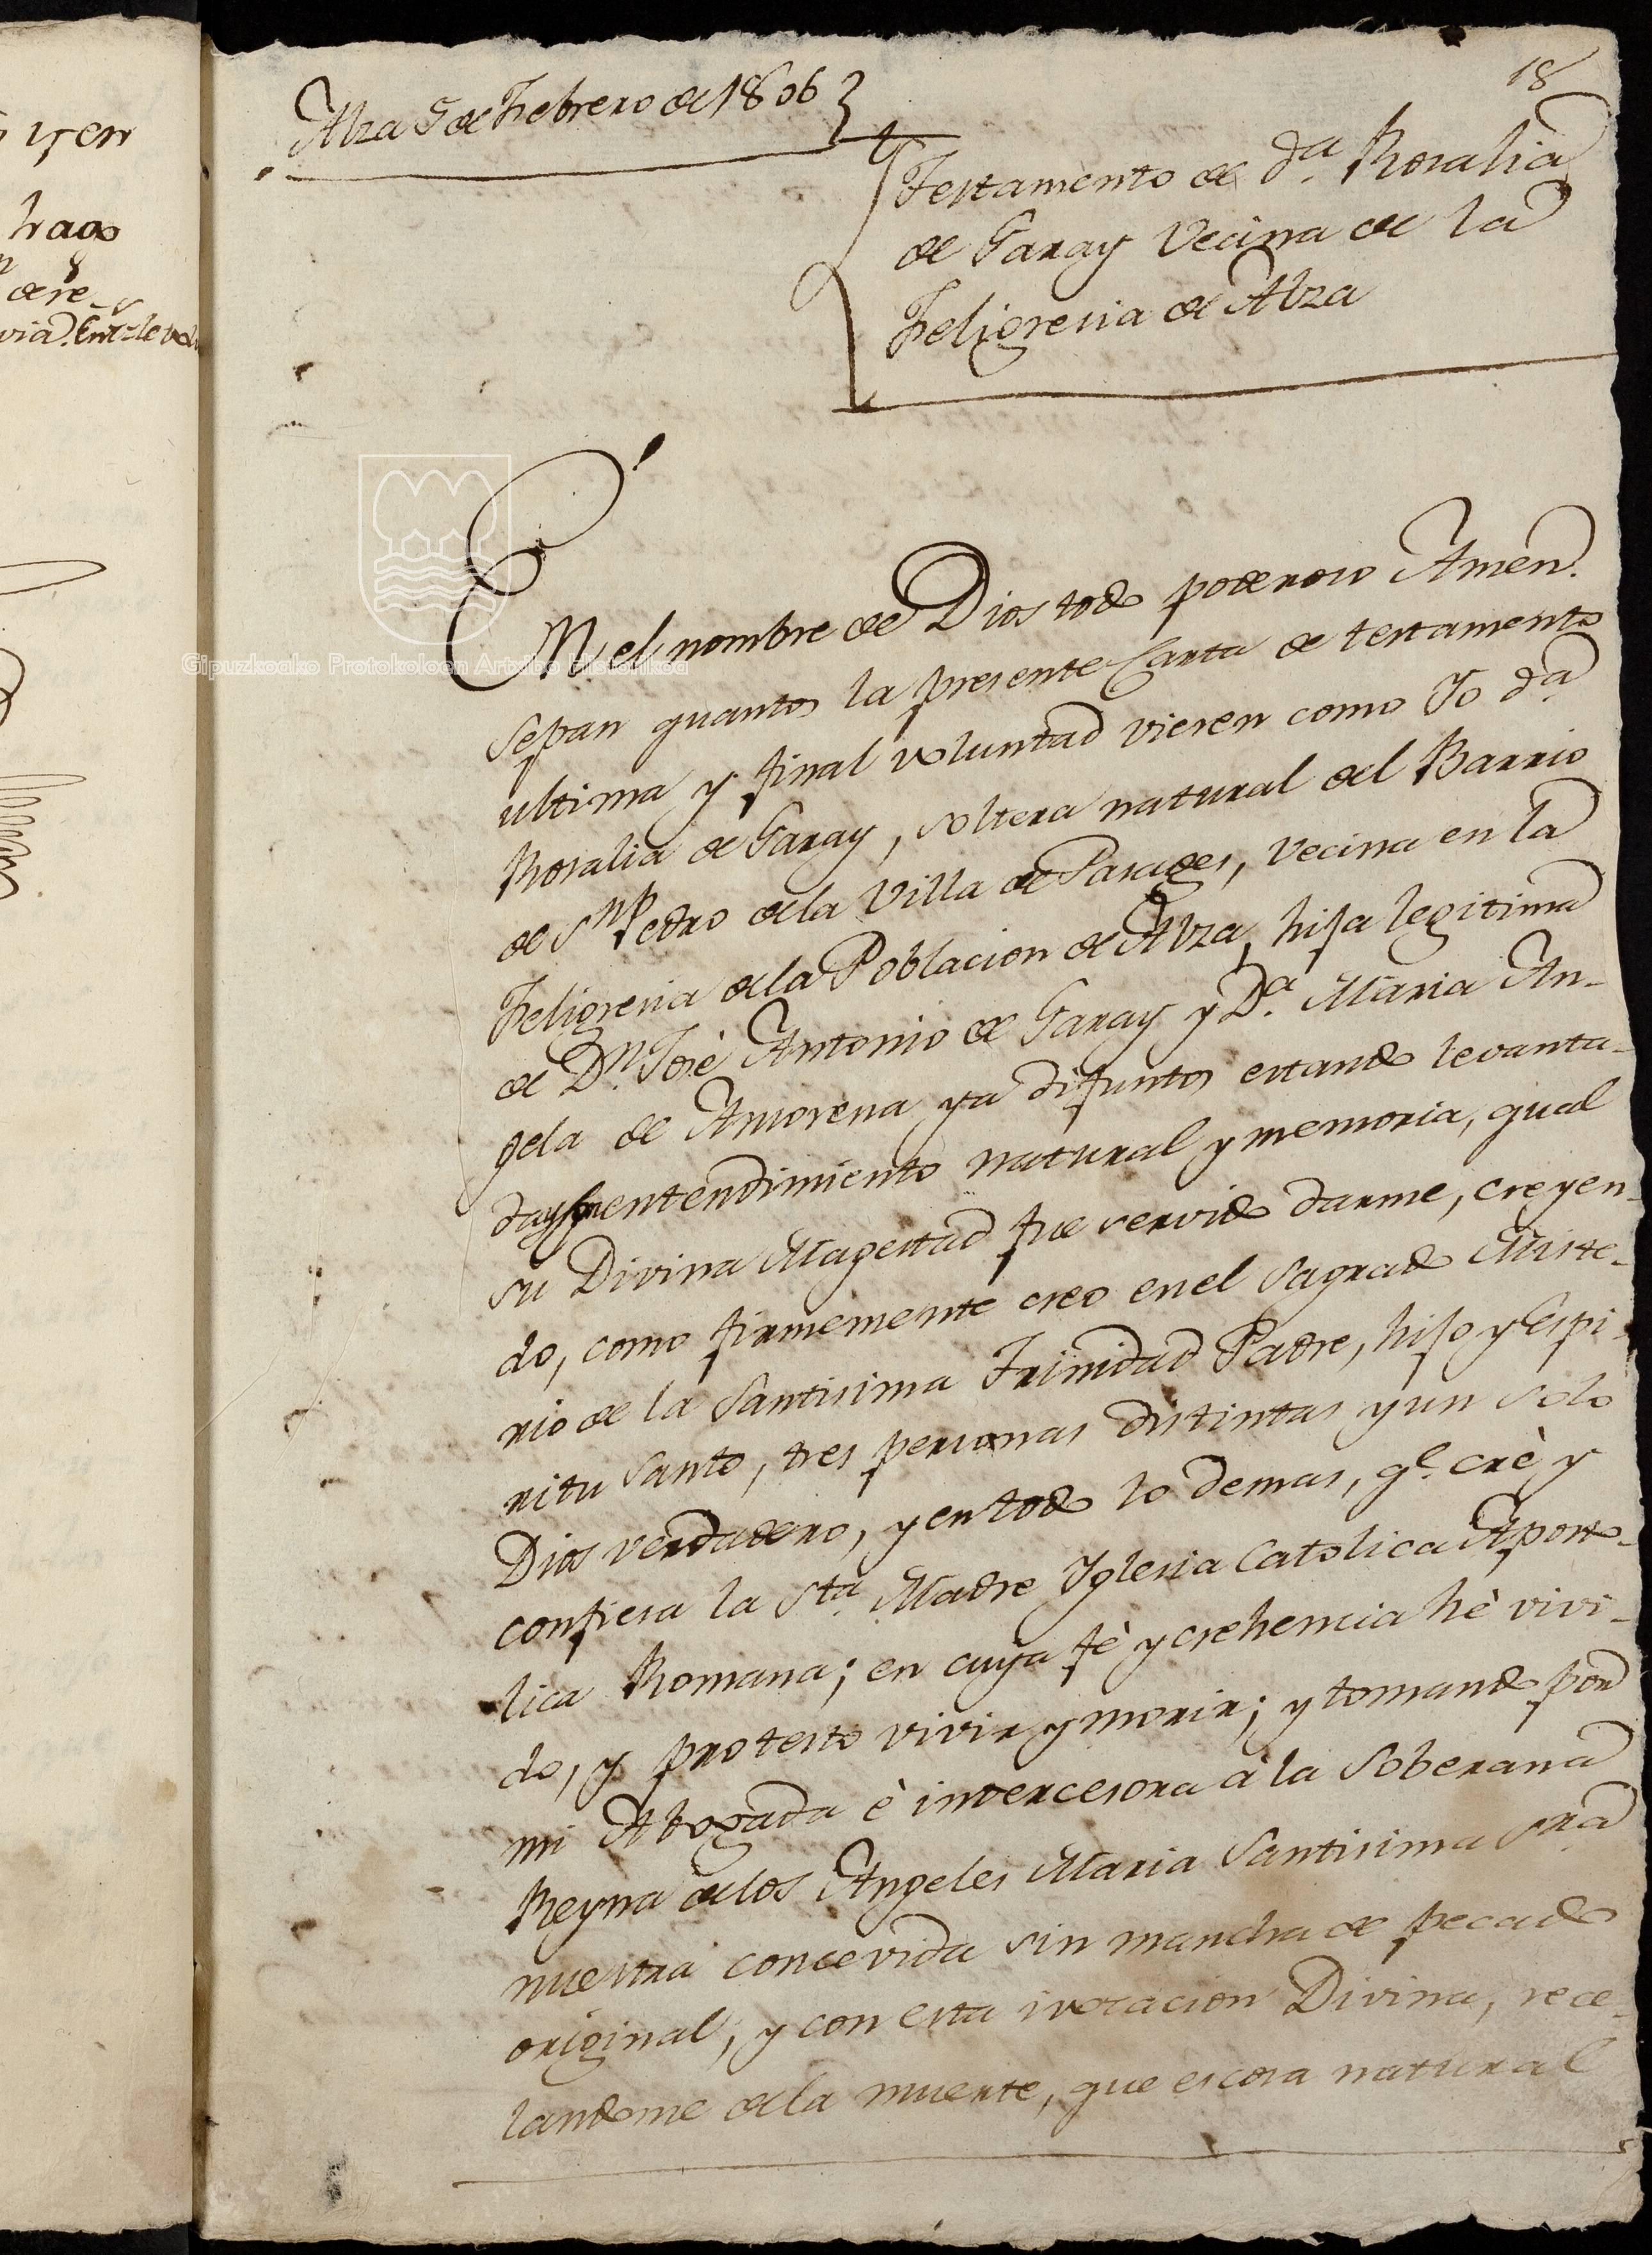 yen
hago
de re-
via. Ent.
Alza 5 de Febrero de 1806
18
Testamento de d.ª Rosalia
de Garay Vecina de la
Feligresia de Alza
Gipuzkoako Protokoloen Artxibo Historikoa
EN el nombre de Dios todo poderoso Amen.
Sepan quantos la presente Carta de testamento
ultima y final voluntad vieren como Yo d.ª
Rosalia de Garay, soltera natural del Barrio
de S.n Pedro de la Villa de Pasages, Vecina en la
Feligresia de la Poblacion de Alza, hija legitima
de D.n José Antonio de Garay y D.ª Maria An-
gela de Amorena ya difuntos estando levanta-
da y entendimiento natural y memoria, qual
su Divina Magestad fue servido darme, creyen-
do, como firmemente creo en el Sagrado Miste-
rio de la Santisima Trinidad Padre, hijo y Espi-
ritu Santo, tres personas distintas y un solo
Dios verdadero, y en todo lo demas, q.e crè y
confiesa la S.ta Madre Yglesia Catolica Aposto-
lica Romana; en cuya fè y crehencia hè vivi-
do, y protesto vivir y morir; y tomando por
mi Abogada è intercesora à la Soberana
Reyna de los Angeles Maria Santisima Sra
nuestra concevida sin mancha de pecado
original, y con esta ivocacion Divina, rece-
landome de la muerte, que es cosa natural